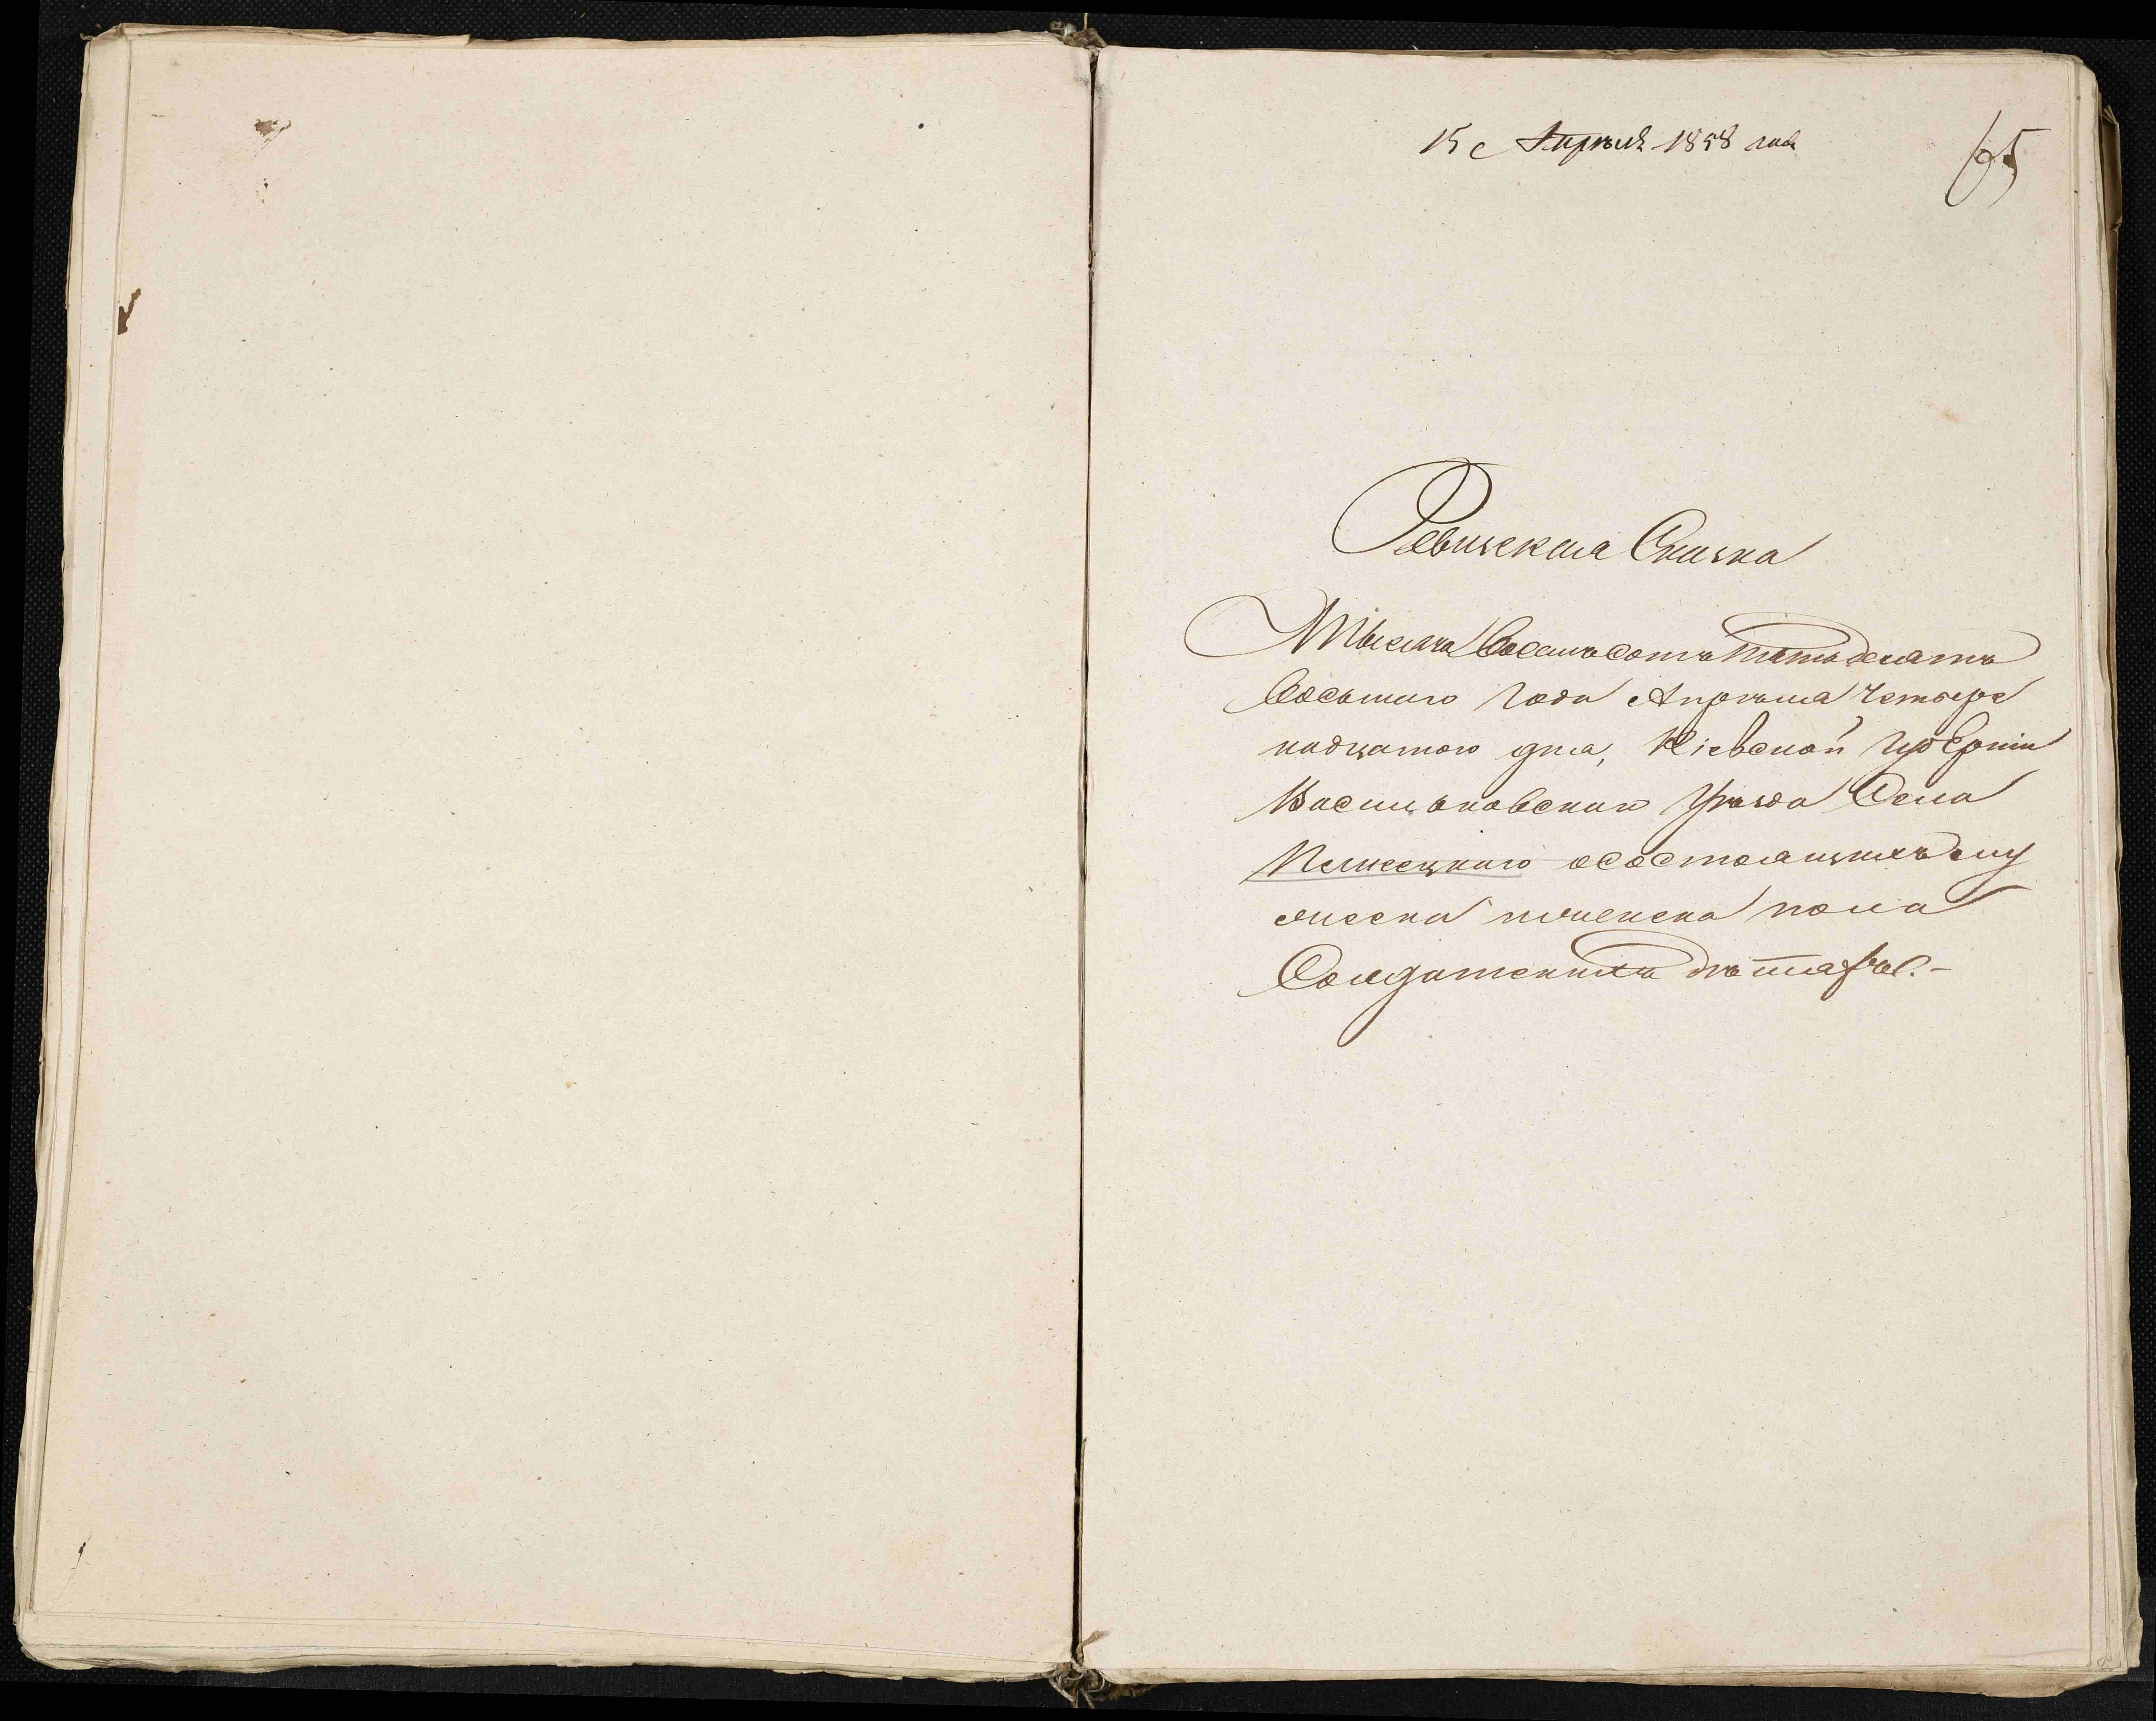 15 Апрѣля 1858 года
65
Ревизская Сказка
Тысяча Восемьсотъ Пятьдесятъ
Восьмого Года Апрѣля Четыре
надцатого дня, Кіевской Губерніи
Васильковскаго Уѣзда Села
о состоящихъ
мужеска и женска пола
Солдатскихъ дѣтяхъ.-